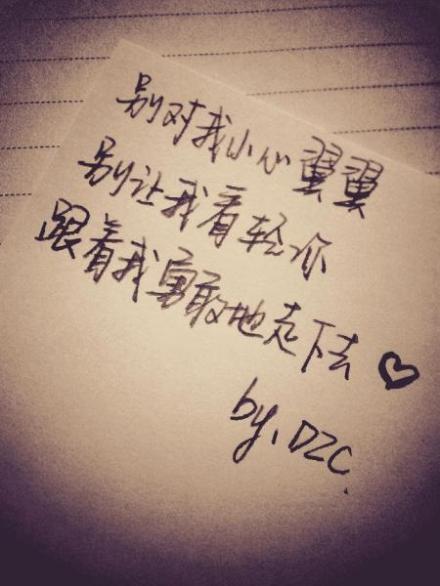 别对我小心翼翼
别让我看轻你
跟着我勇敢地走下去♡
by.DZC.